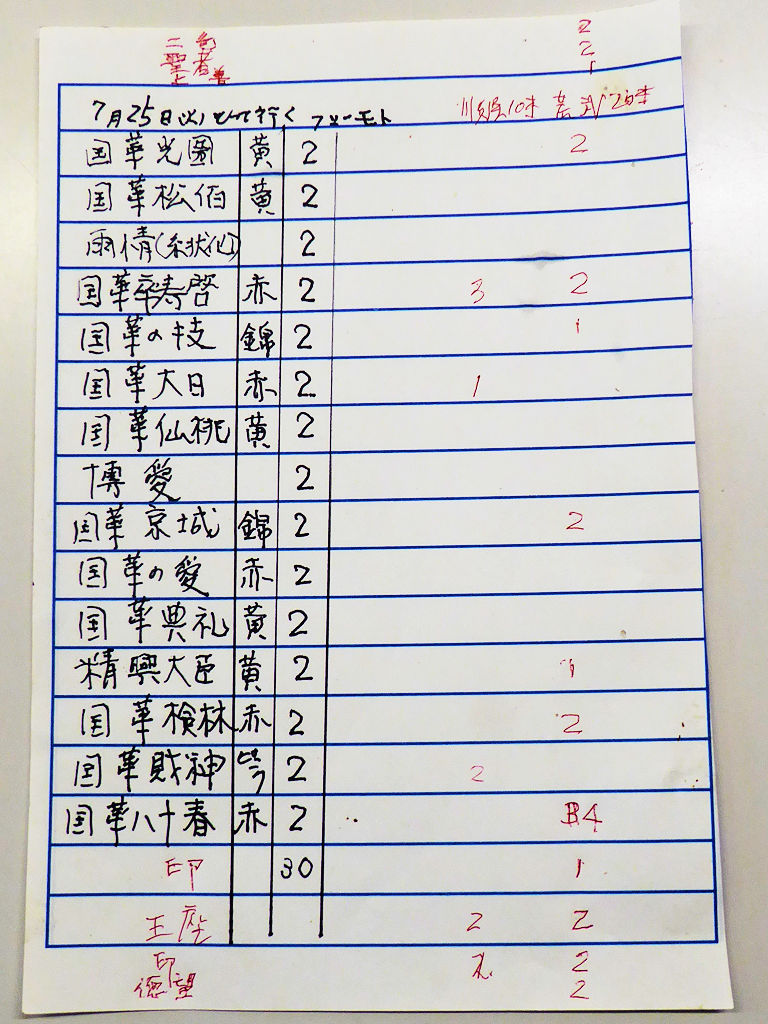 2
聖者 2
上 1
7月25日(火)とって行く フリーモト 10本
国華光圀 黄 2 2
国華松伯 黄 2
雨情(糸状化) 2
国華卒寿啓 赤 2 3 2
国華の技 錦 2 1
国華大日 赤 2 1
国華仙桃 黄 2
博愛 2
国華京城 錦 2 2
国華の愛 赤 2
国華典礼 黄 2
精興大臣 黄 2 1
国華検林 赤 2 2
国華財神 2 2
国華八十春 赤 2 4
印 30 1
王座 2 2
印 2
徳望 2